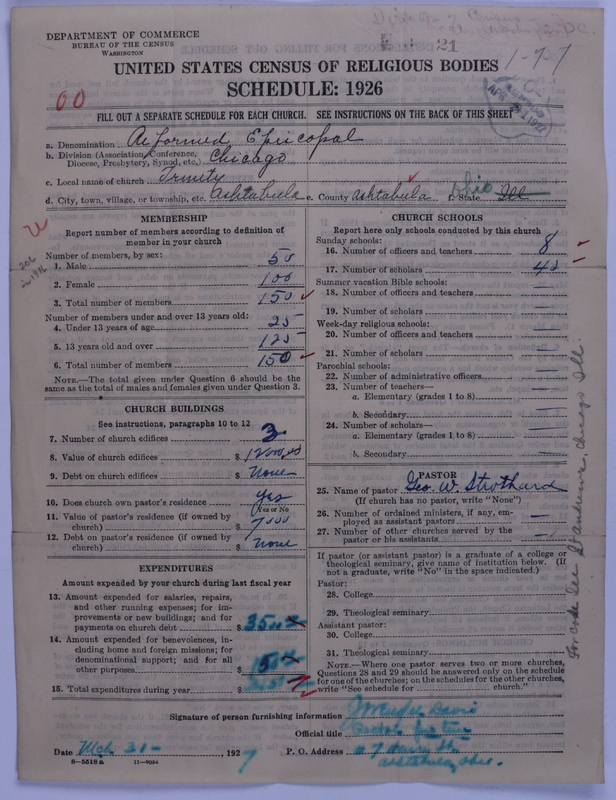 DEPARTMENT OF COMMERCE
BUREAU OF THE CENSUS
WASHINGTON
21
1-7-7
UNITED STATES CENSUS OF RELIGIOUS BODIES
SCHEDULE: 1926
00
FILL OUT A SEPARATE SCHEDULE FOR EACH CHURCH. SEE INSTRUCTIONS ON THE BACK OF THIS SHEET
a. Denomination Reformed Episcopal
b. Division (Association, Conference, Diocese, Presbytery, Synod, etc.) Chicago
c. Local name of church Trinity
d. City, town, village, or township, etc. Ashtabula e. County Ashtabula f. State Ill Ohio
MEMBERSHIP
Report number of members according to definition of
member in your church
Number of members, by sex:
1. Male 50
2. Female 100
3. Total number of members 150
Number of members under and over 13 years old:
4. Under 13 years of age 25
5. 13 years old and over 125
6. Total number of members 150
NOTE.—The total given under Question 6 should be the
same as the total of males and females given under Question 3.
CHURCH BUILDINGS
See instructions, paragraphs 10 to 12
7. Number of church edifices 3
8. Value of church edifices $
9. Debt on church edifices $ None
10. Does church own pastor's residence Yes
(Yes or No
11. Value of pastor's residence (if owned by
church) $ 7000
12. Debt on pastor's residence (if owned by
church) $ None
EXPENDITURES
Amount expended by your church during last fiscal year
13. Amount expended for salaries, repairs,
and other running expenses; for im-
provements or new buildings; and for
payments on church debt $
14. Amount expended for benevolences, in-
cluding home and foreign missions; for
denominational support; and for all
other purposes
15. Total expenditures during year $
CHURCH SCHOOLS
Report here only schools conducted by this church
Sunday schools:
16. Number of officers and teachers 8
17. Number of scholars
Summer vacation Bible schools:
18. Number of officers and teachers —
19. Number of scholars —
Week-day religious schools:
20. Number of officers and teachers —
21. Number of scholars —
Parochial schools:
22. Number of administrative officers —
23. Number of teachers—
a. Elementary (grades 1 to 8) —
b. Secondary —
24. Number of scholars—
a. Elementary (grades 1 to 8) —
b. Secondary —
PASTOR
25. Name of pastor Geo. W. Strothard
(If church has no pastor, write "None")
26. Number of ordained ministers, if any, em-
ployed as assistant pastors —
27. Number of other churches served by the
pastor or his assistants —
If pastor (or assistant pastor) is a graduate of a college or
theological seminary, give name of institution below. (If
not a graduate, write "No" in the space indicated.)
Pastor:
28. College
29. Theological seminary
Assistant pastor:
30. College
31. Theological seminary
NOTE.—Where one pastor serves two or more churches,
Questions 28 and 29 should be answered only on the schedule
for one of the churches; on the schedules for the other churches,
write "See schedule for church."
For code see St andrews, Chicago Ill.
Signature of person furnishing information
Official title
Date Mch 31- , 1927
P. O. Address
Ashtabula, Ohio.
8—5518 a 11—9064